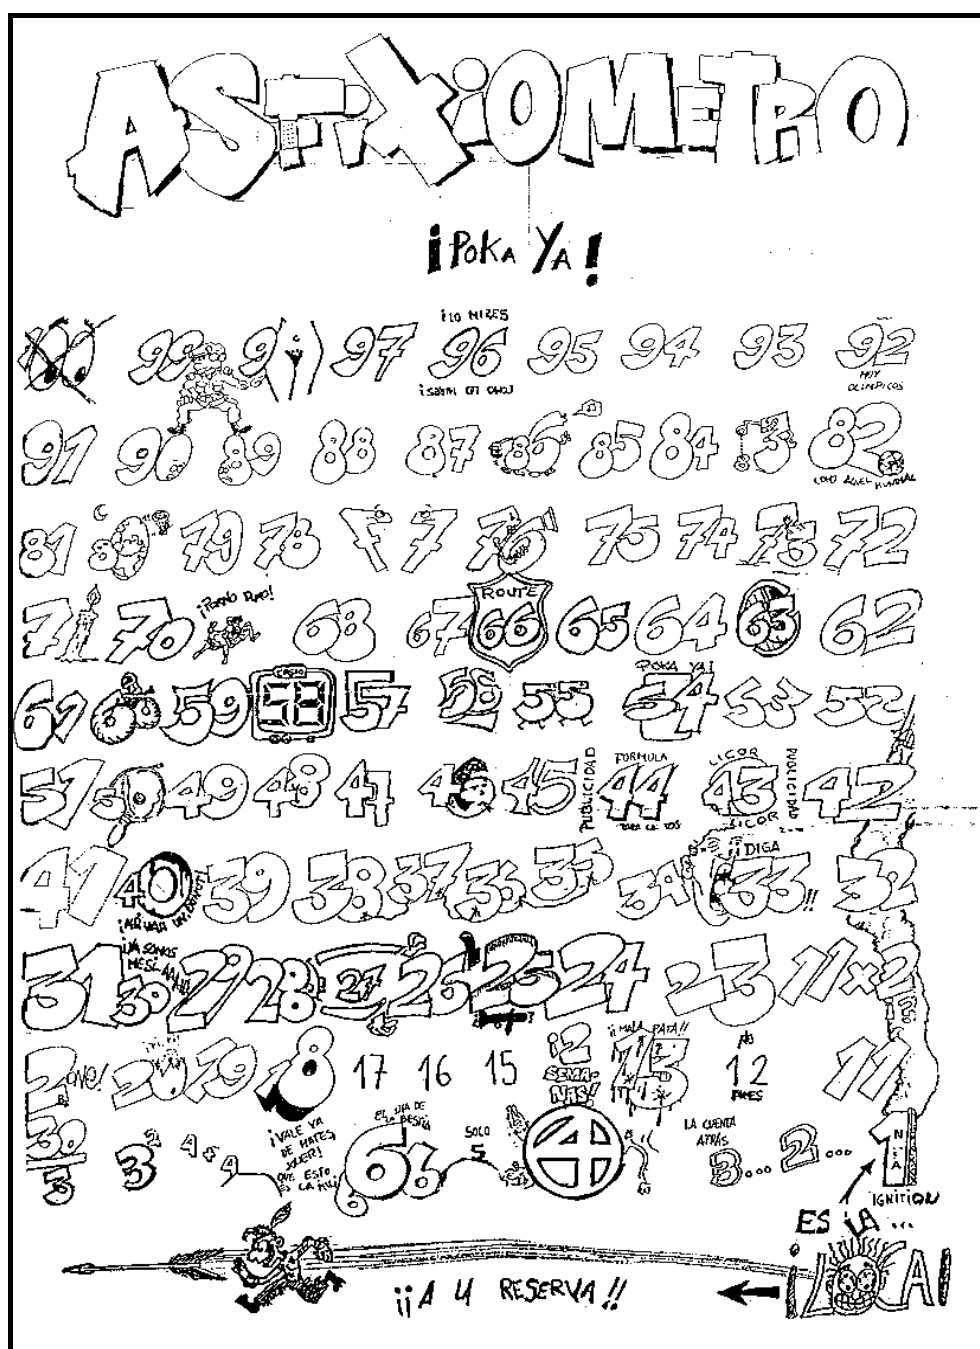 ASFIXIOMETRO
¡POKA YA!
¡LO MIRES
100 99 98 97 96 95 94 93 92
MUY OLIMPICOS
91 90 89 88 87 86 85 84 83 82
COMO AQUEL MUNDIAL
81 80 79 78 77 76 75 74 73 72
71 70 ¡PORNO DURO! 68 67 ROUTE 66 65 64 63 62
CASIO POKA YA!
61 60 59 58 57 56 55 54 53 52
51 50 49 48 47 46 45 PUBLICIDAD FORMULA 44 LICOR 43 PUBLICIDAD 42
PARA LA TOS LICOR
41 40 39 38 37 36 35 34 ¡¡DIGA 33!! 32
¡YA SOMOS
31 30 29 28 27 26 25 24 23 11x2
2 ONE! 20 19 18 17 16 15 ¡2 SEMANAS! ¡¡MALA PATA!! 13 12 11
30/3 3² 4+4 ¡VALE YA DE MATES, JOER! QUE ESTO ES LA MILI EL DIA DE BESTIA 666 SOLO 5 4 LA CUENTA ATRÁS 3... 2... 1
IGNITION
ES LA...
¡LOCA!
¡¡A LA RESERVA!!